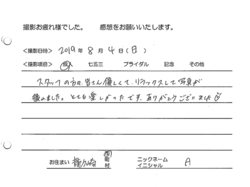 撮影お疲れ様でした。 感想をお願いいたします。
<撮影日時> 2019年 8月 4日(日)
<撮影項目> 成人 七五三 ブライダル 記念 その他
スタッフの方々、皆さん優しくて、リラックスして写真が
撮れました。とても楽しかったです。ありがとうございました
お住まい 龍ケ崎 市 町 村 ニックネーム イニシャル A